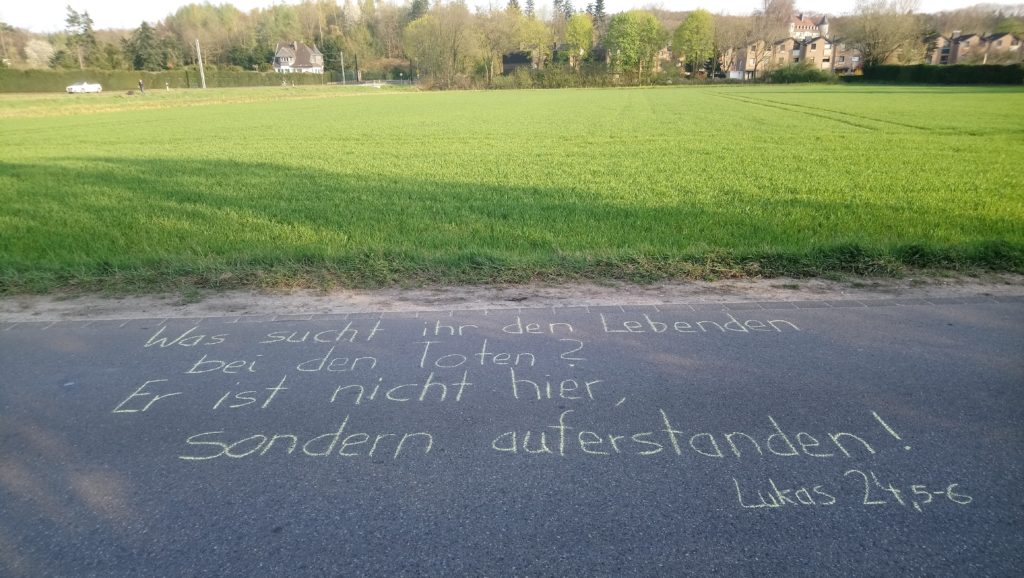 Was sucht ihr den Lebenden
bei den Toten?
Er ist nicht hier,
sondern auferstanden!
Lukas 24,5-6